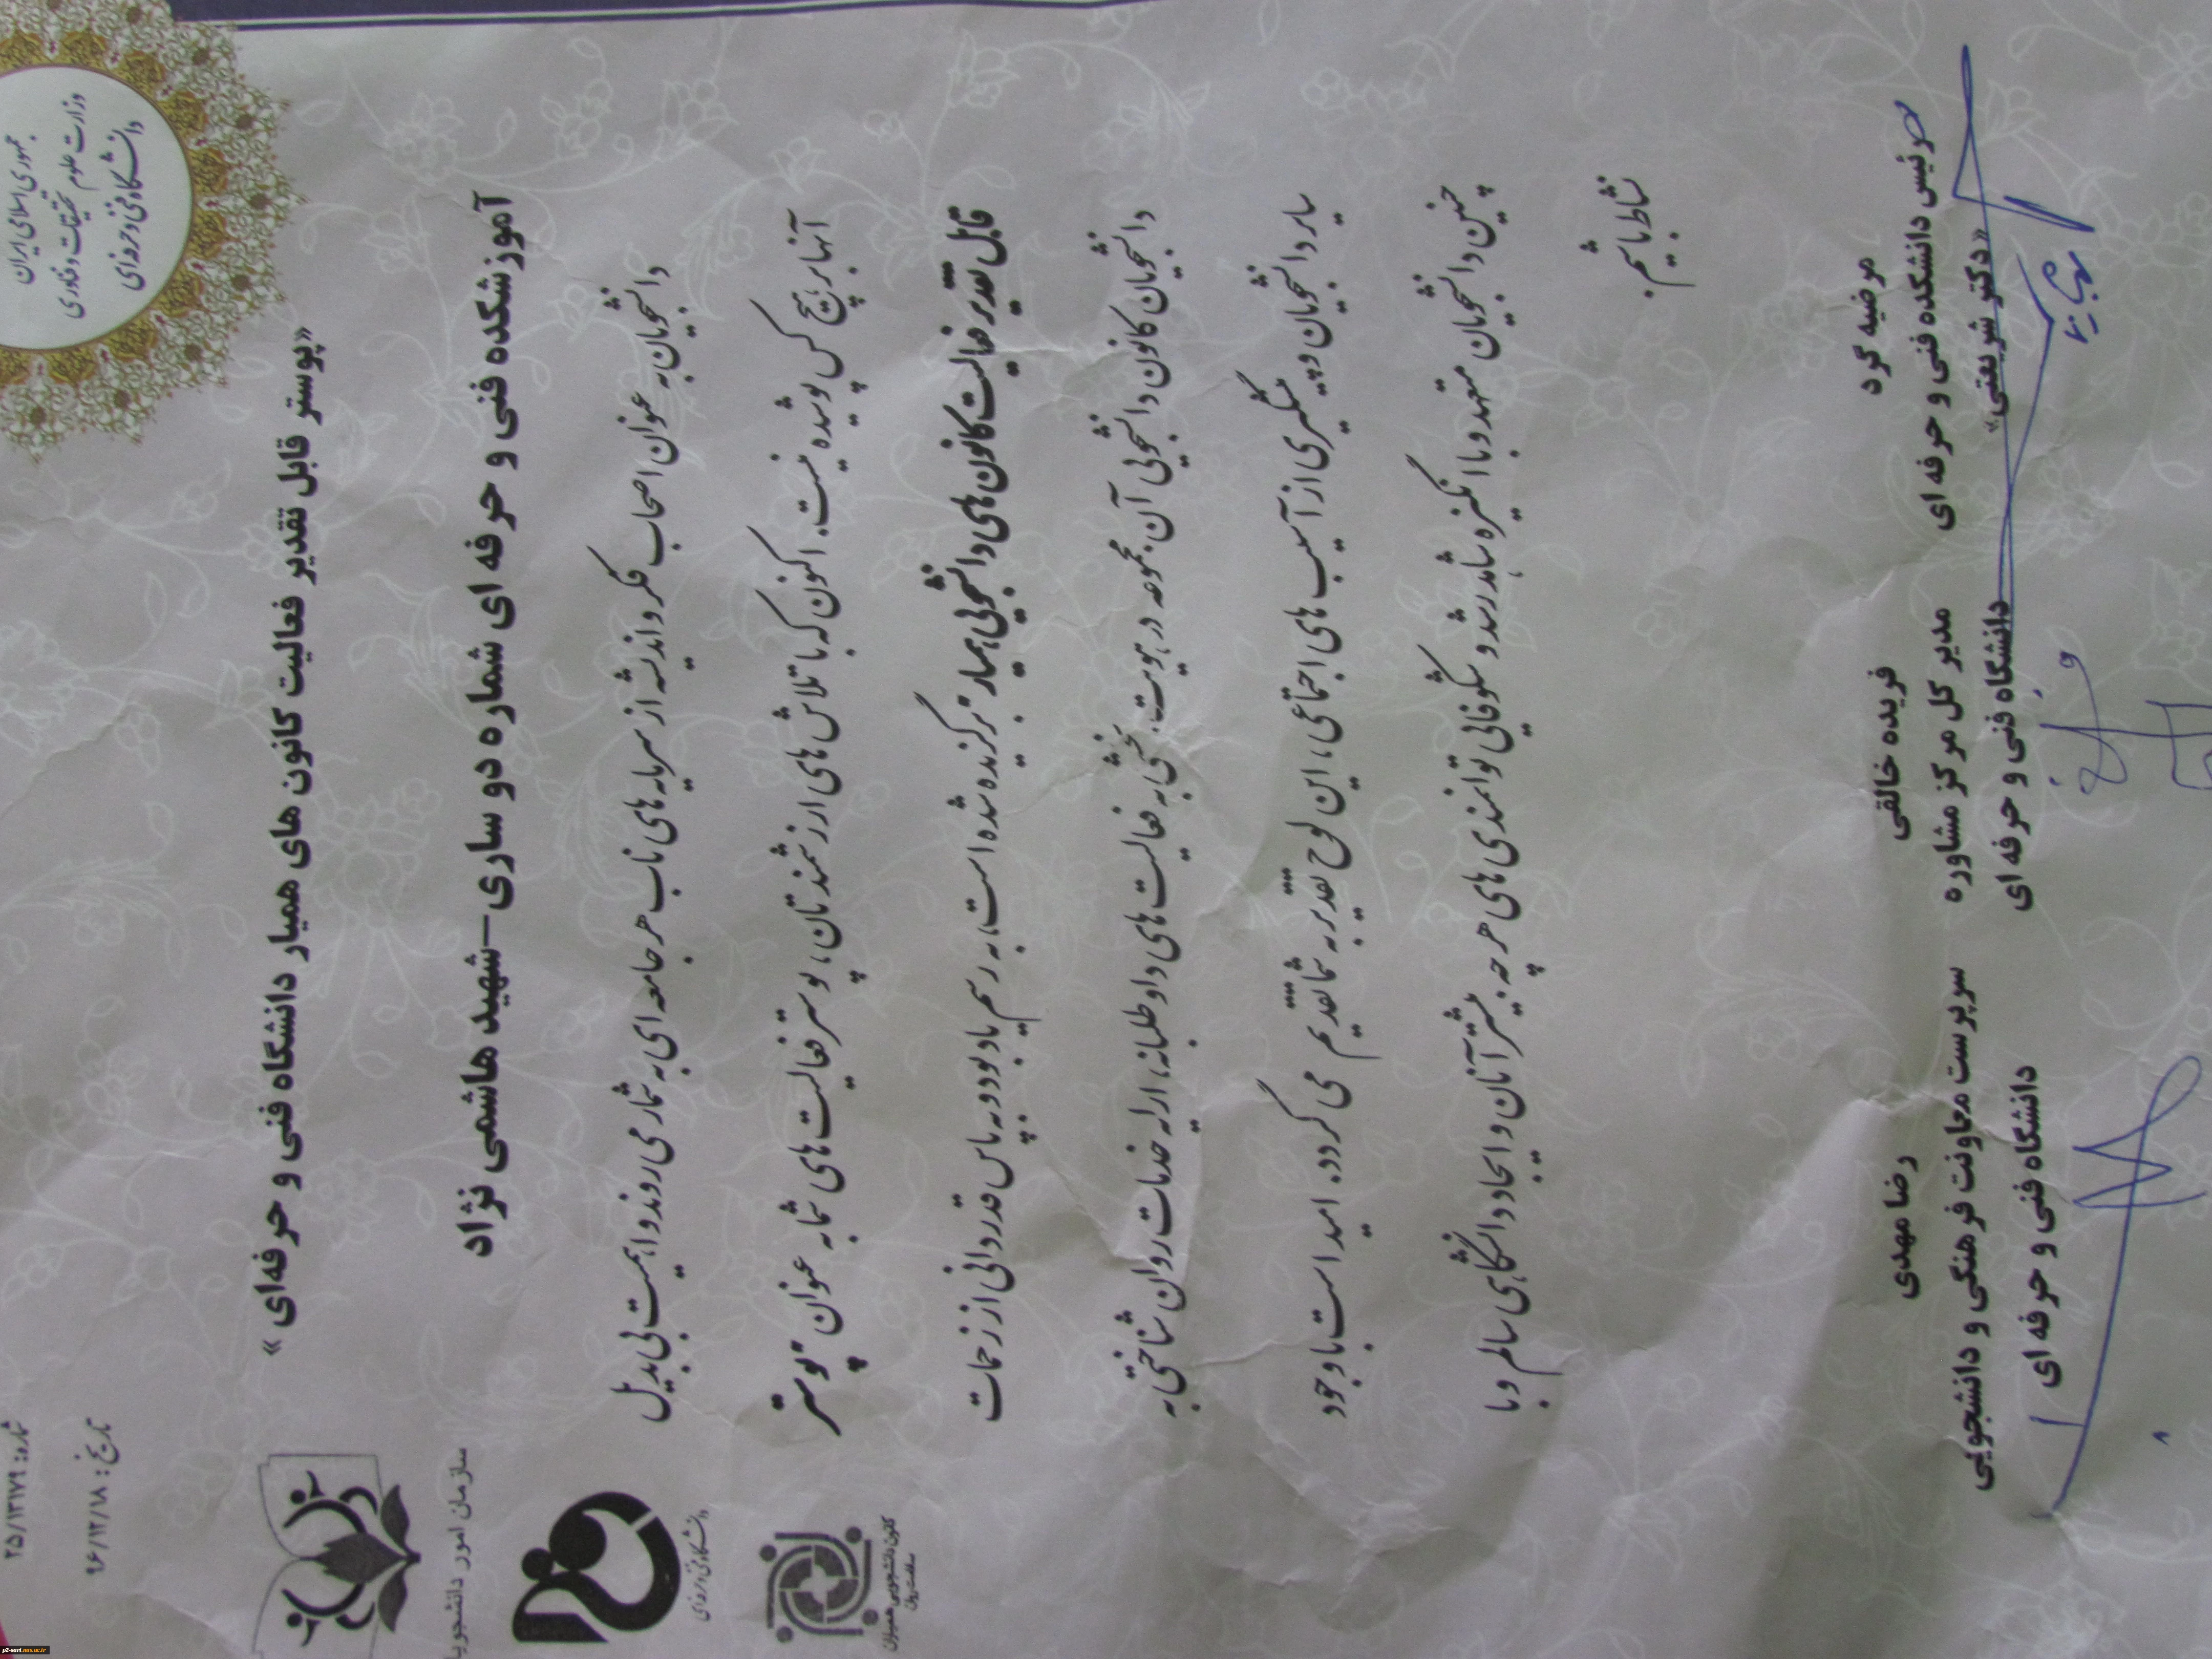 جمهوری اسلامی ایران
وزارت علوم تحقیقات و فناوری
دانشگاه فنی و حرفه‌ای
شماره: ۲۵/۱۳۱۷۹
تاریخ: ۹۶/۱۲/۱۸
«پوستر قابل تقدیر فعالیت کانون های همیار دانشگاه فنی و حرفه‌ای »
آموزشکده فنی و حرفه ای شماره دو ساری–شهید هاشمی نژاد
دانشجویان به عنوان اصحاب فکر و اندیشه از سرمایه های ناب هر جامعه ای به شمار می روند و اهمیت بی بدیل
آنها بر هیچ کس پوشیده نیست. اکنون که با تلاش های ارزشمندتان، پوستر فعالیت های شما به عنوان "پوستر
قابل تقدیر فعالیت کانون های دانشجویی همیار" برگزیده شده است، به رسم یادبود و به پاس قدردانی از زحمات
دانشجویان کانون دانشجویی آن مجموعه در هویت بخشی به فعالیت های داوطلبانه، ارایه خدمات روان شناختی به
سایر دانشجویان و پیشگیری از آسیب های اجتماعی، این لوح تقدیر به شما تقدیم می گردد. امید است با وجود
چنین دانشجویان متعهد و با انگیزه شاهد رشد و شکوفائی توانمندی های هر چه بیشتر آنان و ایجاد دانشگاهی سالم و با
نشاط باشیم.
مرضیه گرد
رئیس دانشکده فنی و حرفه ای
«دکتر شریعتی»
فریده خالقی
مدیر کل مرکز مشاوره
دانشگاه فنی و حرفه ای
رضا مهدی
سرپرست معاونت فرهنگی و دانشجویی
دانشگاه فنی و حرفه ای
سازمان امور دانشجویا
دانشگاه فنی و حرفه‌ای
کانون دانشجویی همیاران
سلامت روان
p2-sari.mazandaran.tvu.ac.ir